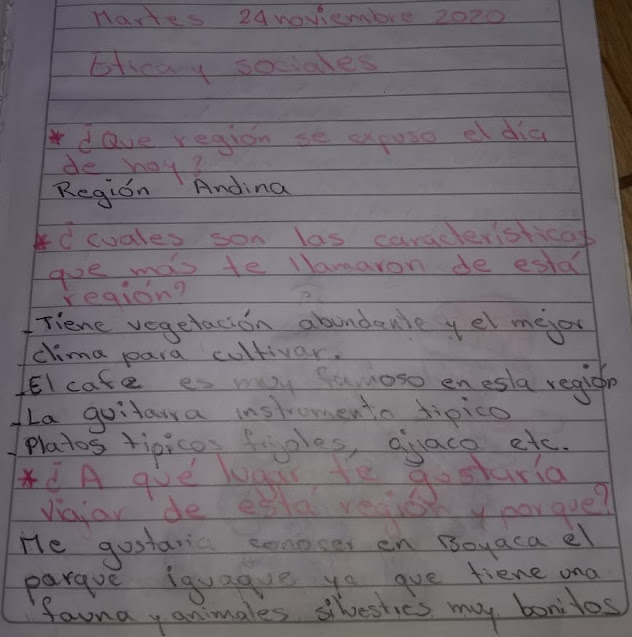 Martes 24 noviembre 2020
Etica y sociales
* ¿Que región se expuso el día
de hoy?
Región Andina
* ¿cuales son las características
que más te llamaron de está
región?
- Tiene vegetación abundante y el mejor
clima para cultivar.
- El cafe es muy famoso en esta región
- La guitarra instrumento tipico
- Platos tipicos frijoles, ajiaco etc.
* ¿A qué lugar te gustaría
viajar de está región y porque?
Me gustaria conocer en Boyaca el
parque iguaque ya que tiene una
fauna y animales silvestres muy bonitos